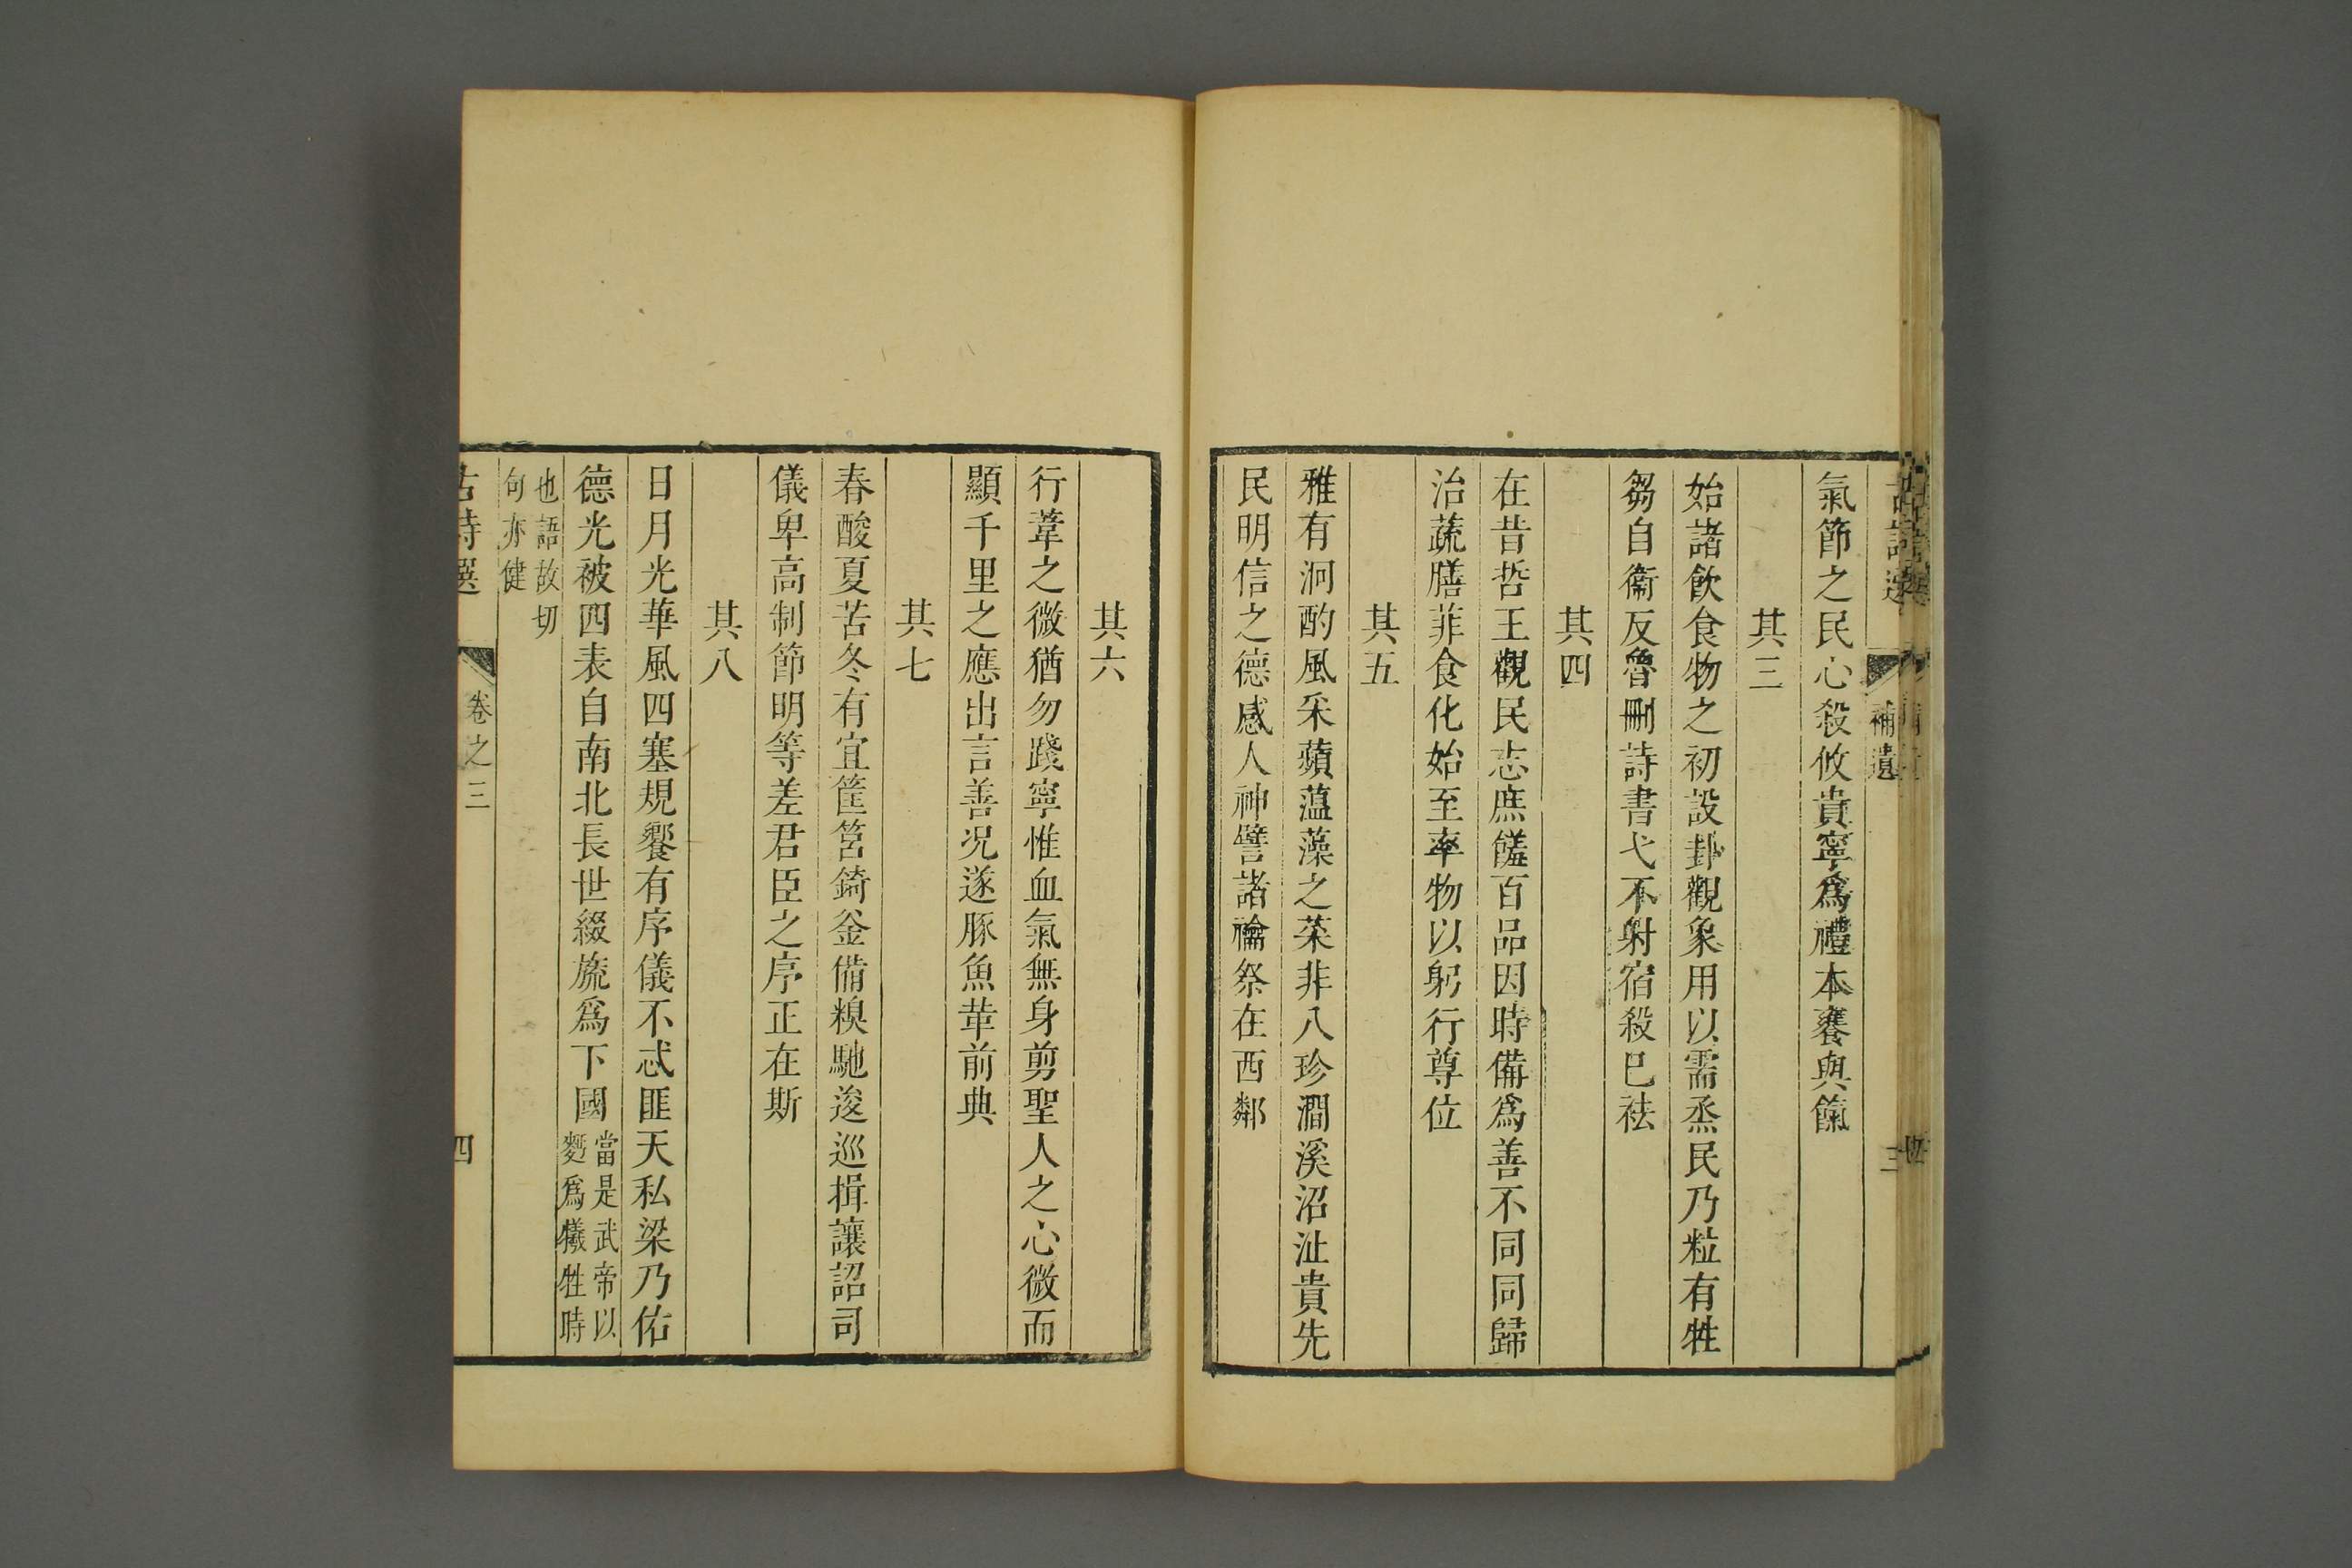 補遺
三
氣節之民心殺攸貴寧爲禮本饔與餼
其三
始諸飲食物之初設卦觀象用以需烝民乃粒有牲
芻自衞反魯刪詩書弋不射宿殺巳祛
其四
在昔哲王觀民志庶饈百品因時備爲善不同同歸
治蔬膳菲食化始至率物以躬行尊位
其五
雅有泂酌風采蘋薀藻之菜非八珍澗溪沼沚貴先
民明信之德感人神譬諸禴祭在西鄰
其六
行葦之微猶勿踐寧惟血氣無身剪聖人之心微而
顯千里之應出言善况遂豚魚革前典
其七
春酸夏苦冬有宜筐筥錡釜備糗馳逡巡揖讓詔司
儀卑高制節明等差君臣之序正在斯
其八
日月光華風四塞規饗有序儀不忒匪天私梁乃佑
德光被四表自南北長世綴旒爲下國當是武帝以
麪爲犧牲時
也語故切
句亦健
古詩選
卷之三
四